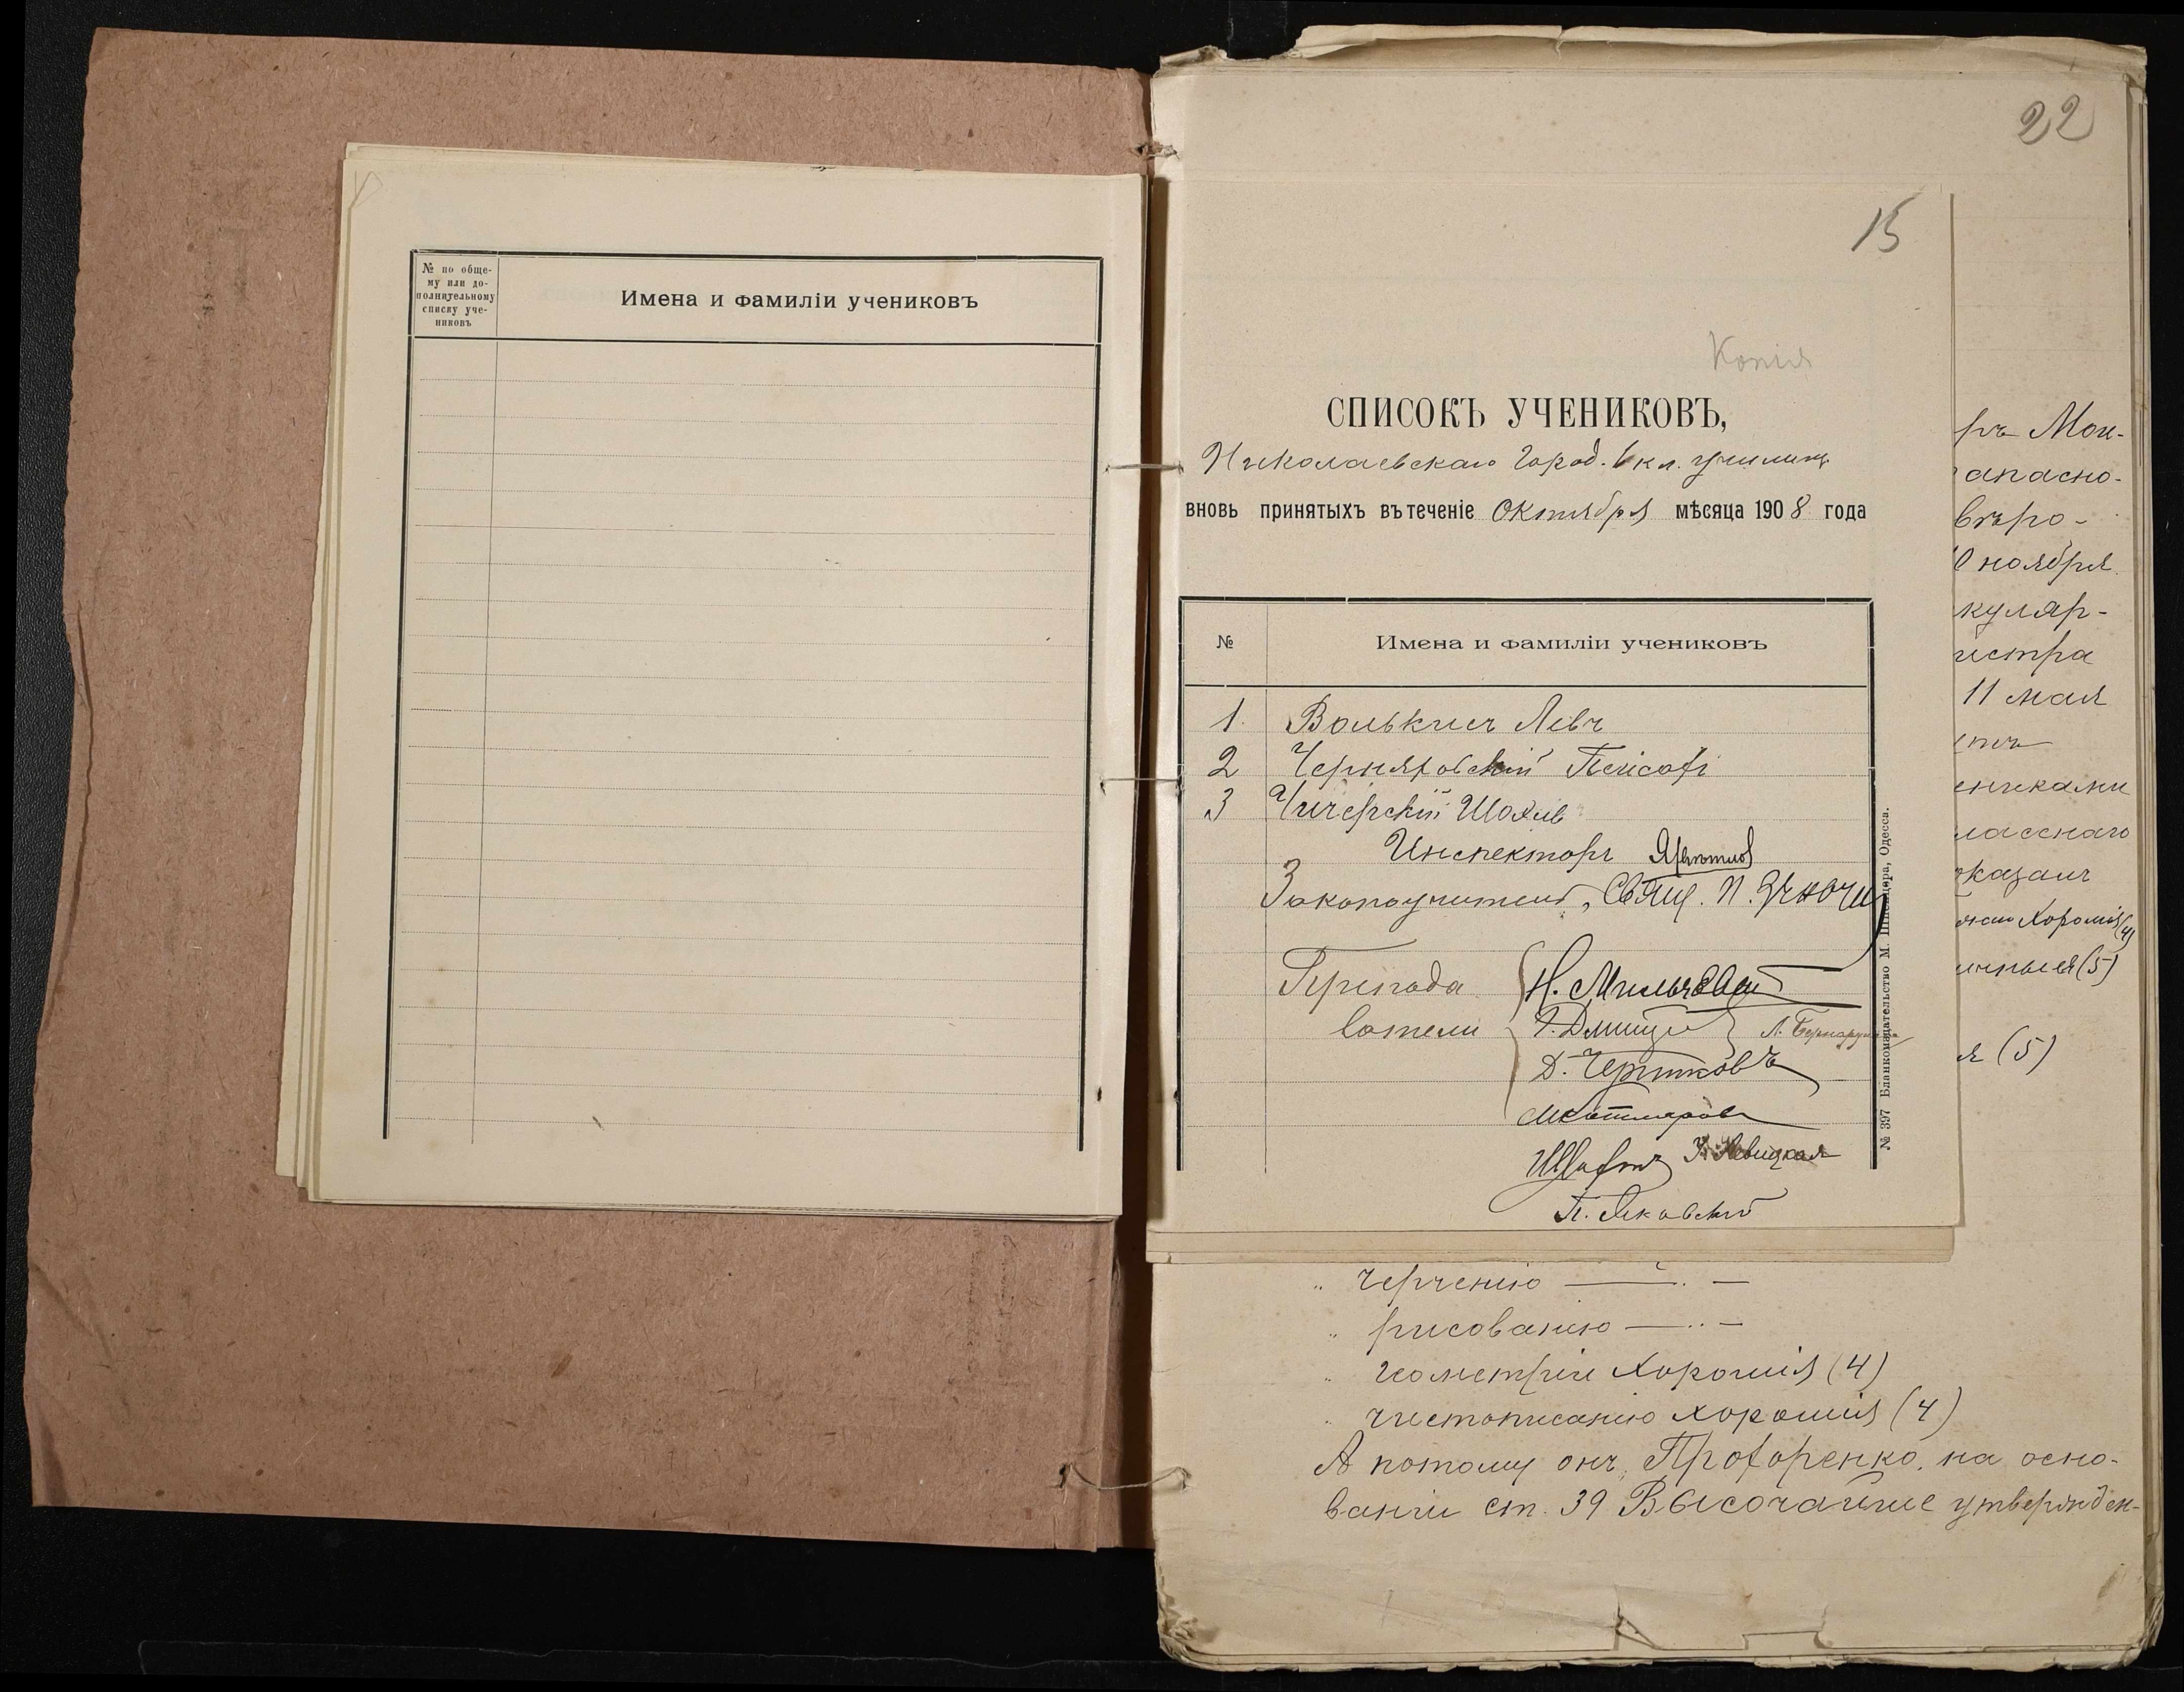 № по обще-
му или до-
полнительному
списку уче-
никовъ
Имена и фамиліи учениковъ
22
15
Копія
СПИСОКЪ УЧЕНИКОВЪ,
Николаевскаго Город. 6 кл. училищ.
вновь принятыхъ въ теченіе Октября мѣсяца 1908 года
№
Имена и фамиліи учениковъ
1. Волькисъ Левъ
2 Черняховскій
3 Чичерскій
Инспекторъ
Законоучитель, Свящ. П.
Препода
ватели
Д. Чертковъ
Левицкая
№ 397 Бланкоиздательство М. Одесса.
ръ Мон-
апасно-
вѣро-
0 ноября
куляр-
истра
11 мая
етъ
никами
лассного
казалъ
Хорошія (4)
(5)
я (5)
„ черченію — „ —
„ рисованію — „ —
„ геометріи хорошія (4)
„ чистописанію хорошія (4)
А потому онъ, Прохоренко, на осно-
ваніи ст. 39 Высочайше утвержден-